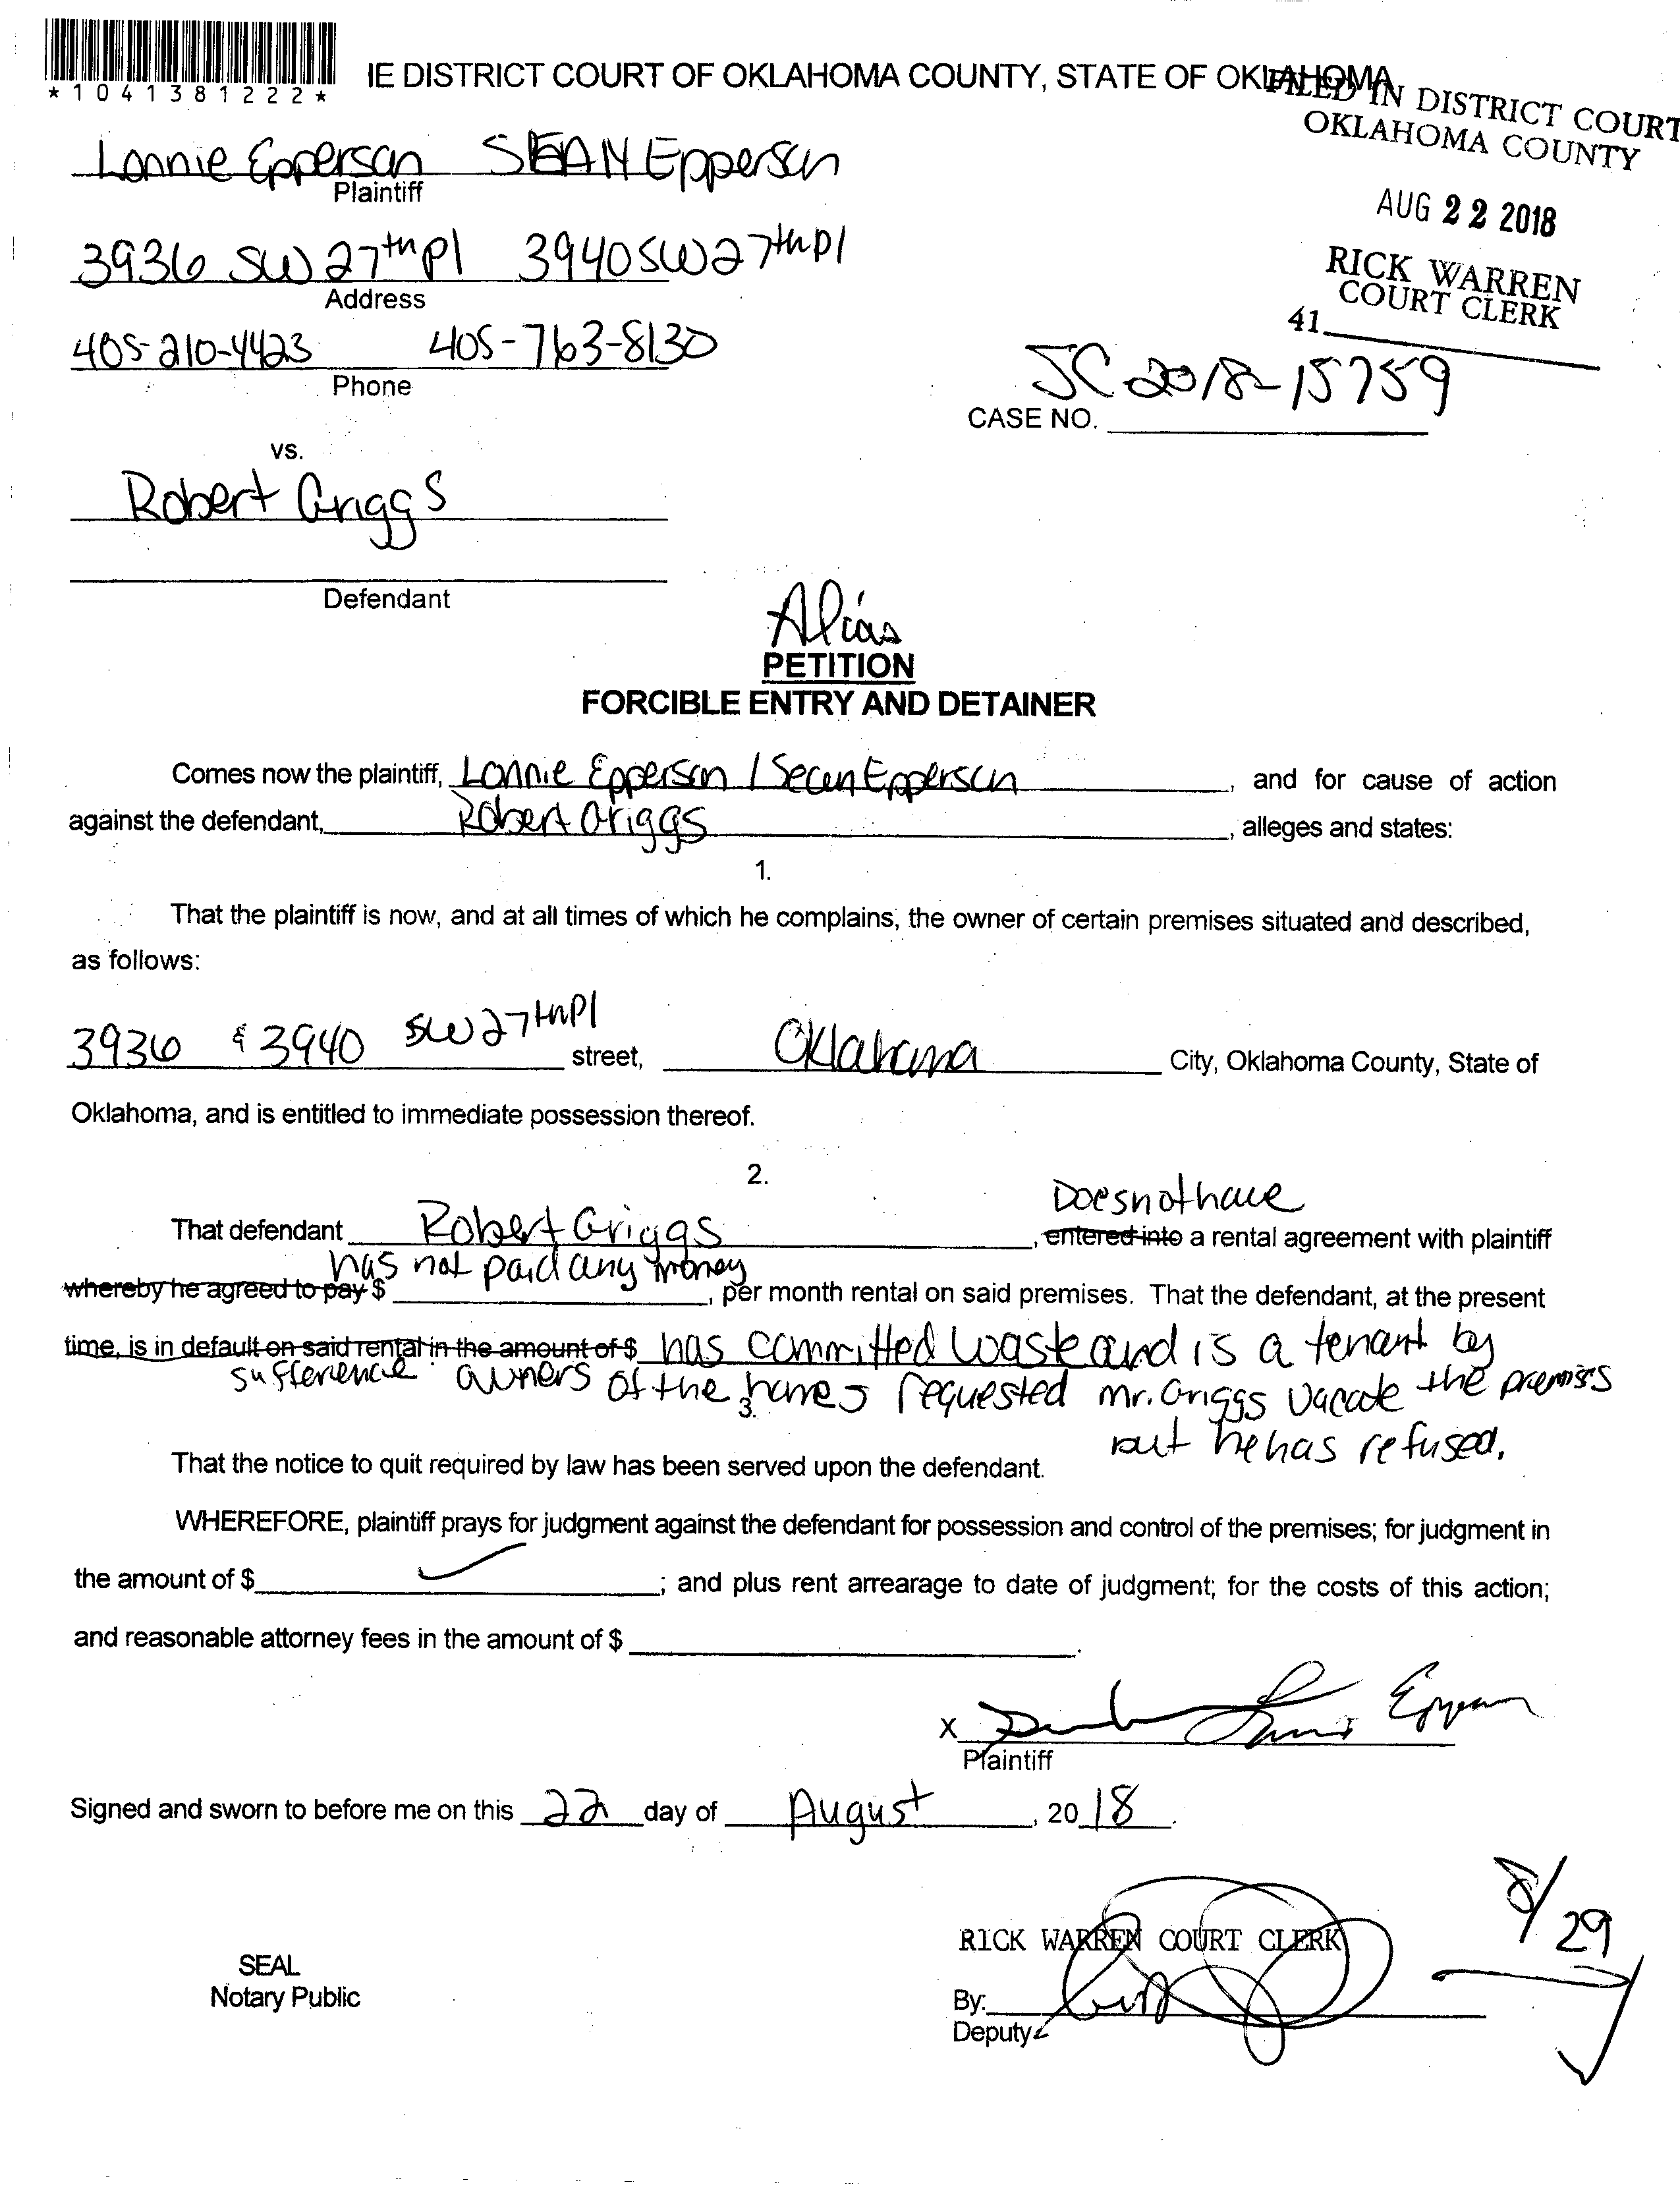 *1041381222*
IE DISTRICT COURT OF OKLAHOMA COUNTY, STATE OF OKLAHOMA
FILED IN DISTRICT COURT
OKLAHOMA COUNTY
AUG 22 2018
RICK WARREN
COURT CLERK
41
Lonnie Epperson SEAN Epperson
Plaintiff
3936 SW 27th Pl 3940 SW 27th Pl
Address
405-210-4423 405-763-8130
Phone
SC 2018-15759
CASE NO.
vs.
Robert Griggs
Defendant
Alias
PETITION
FORCIBLE ENTRY AND DETAINER
Comes now the plaintiff, Lonnie Epperson / Sean Epperson, and for cause of action
against the defendant, Robert Griggs, alleges and states:
1.
That the plaintiff is now, and at all times of which he complains, the owner of certain premises situated and described,
as follows:
3936 & 3940 SW 27th Pl street, Oklahoma City, Oklahoma County, State of
Oklahoma, and is entitled to immediate possession thereof.
2.
Does not have
That defendant Robert Griggs, entered into a rental agreement with plaintiff
has not paid any money
whereby he agreed to pay $, per month rental on said premises. That the defendant, at the present
time, is in default on said rental in the amount of $ has committed waste and is a tenant by
sufference owners of the homes requested Mr. Griggs vacate the premises
3.
but he has refused.
That the notice to quit required by law has been served upon the defendant.
WHEREFORE, plaintiff prays for judgment against the defendant for possession and control of the premises; for judgment in
the amount of $; and plus rent arrearage to date of judgment; for the costs of this action;
and reasonable attorney fees in the amount of $.
X Epperson
Plaintiff
Signed and sworn to before me on this 22 day of August, 2018.
8/29
RICK WARREN COURT CLERK
SEAL
Notary Public
By:
Deputy